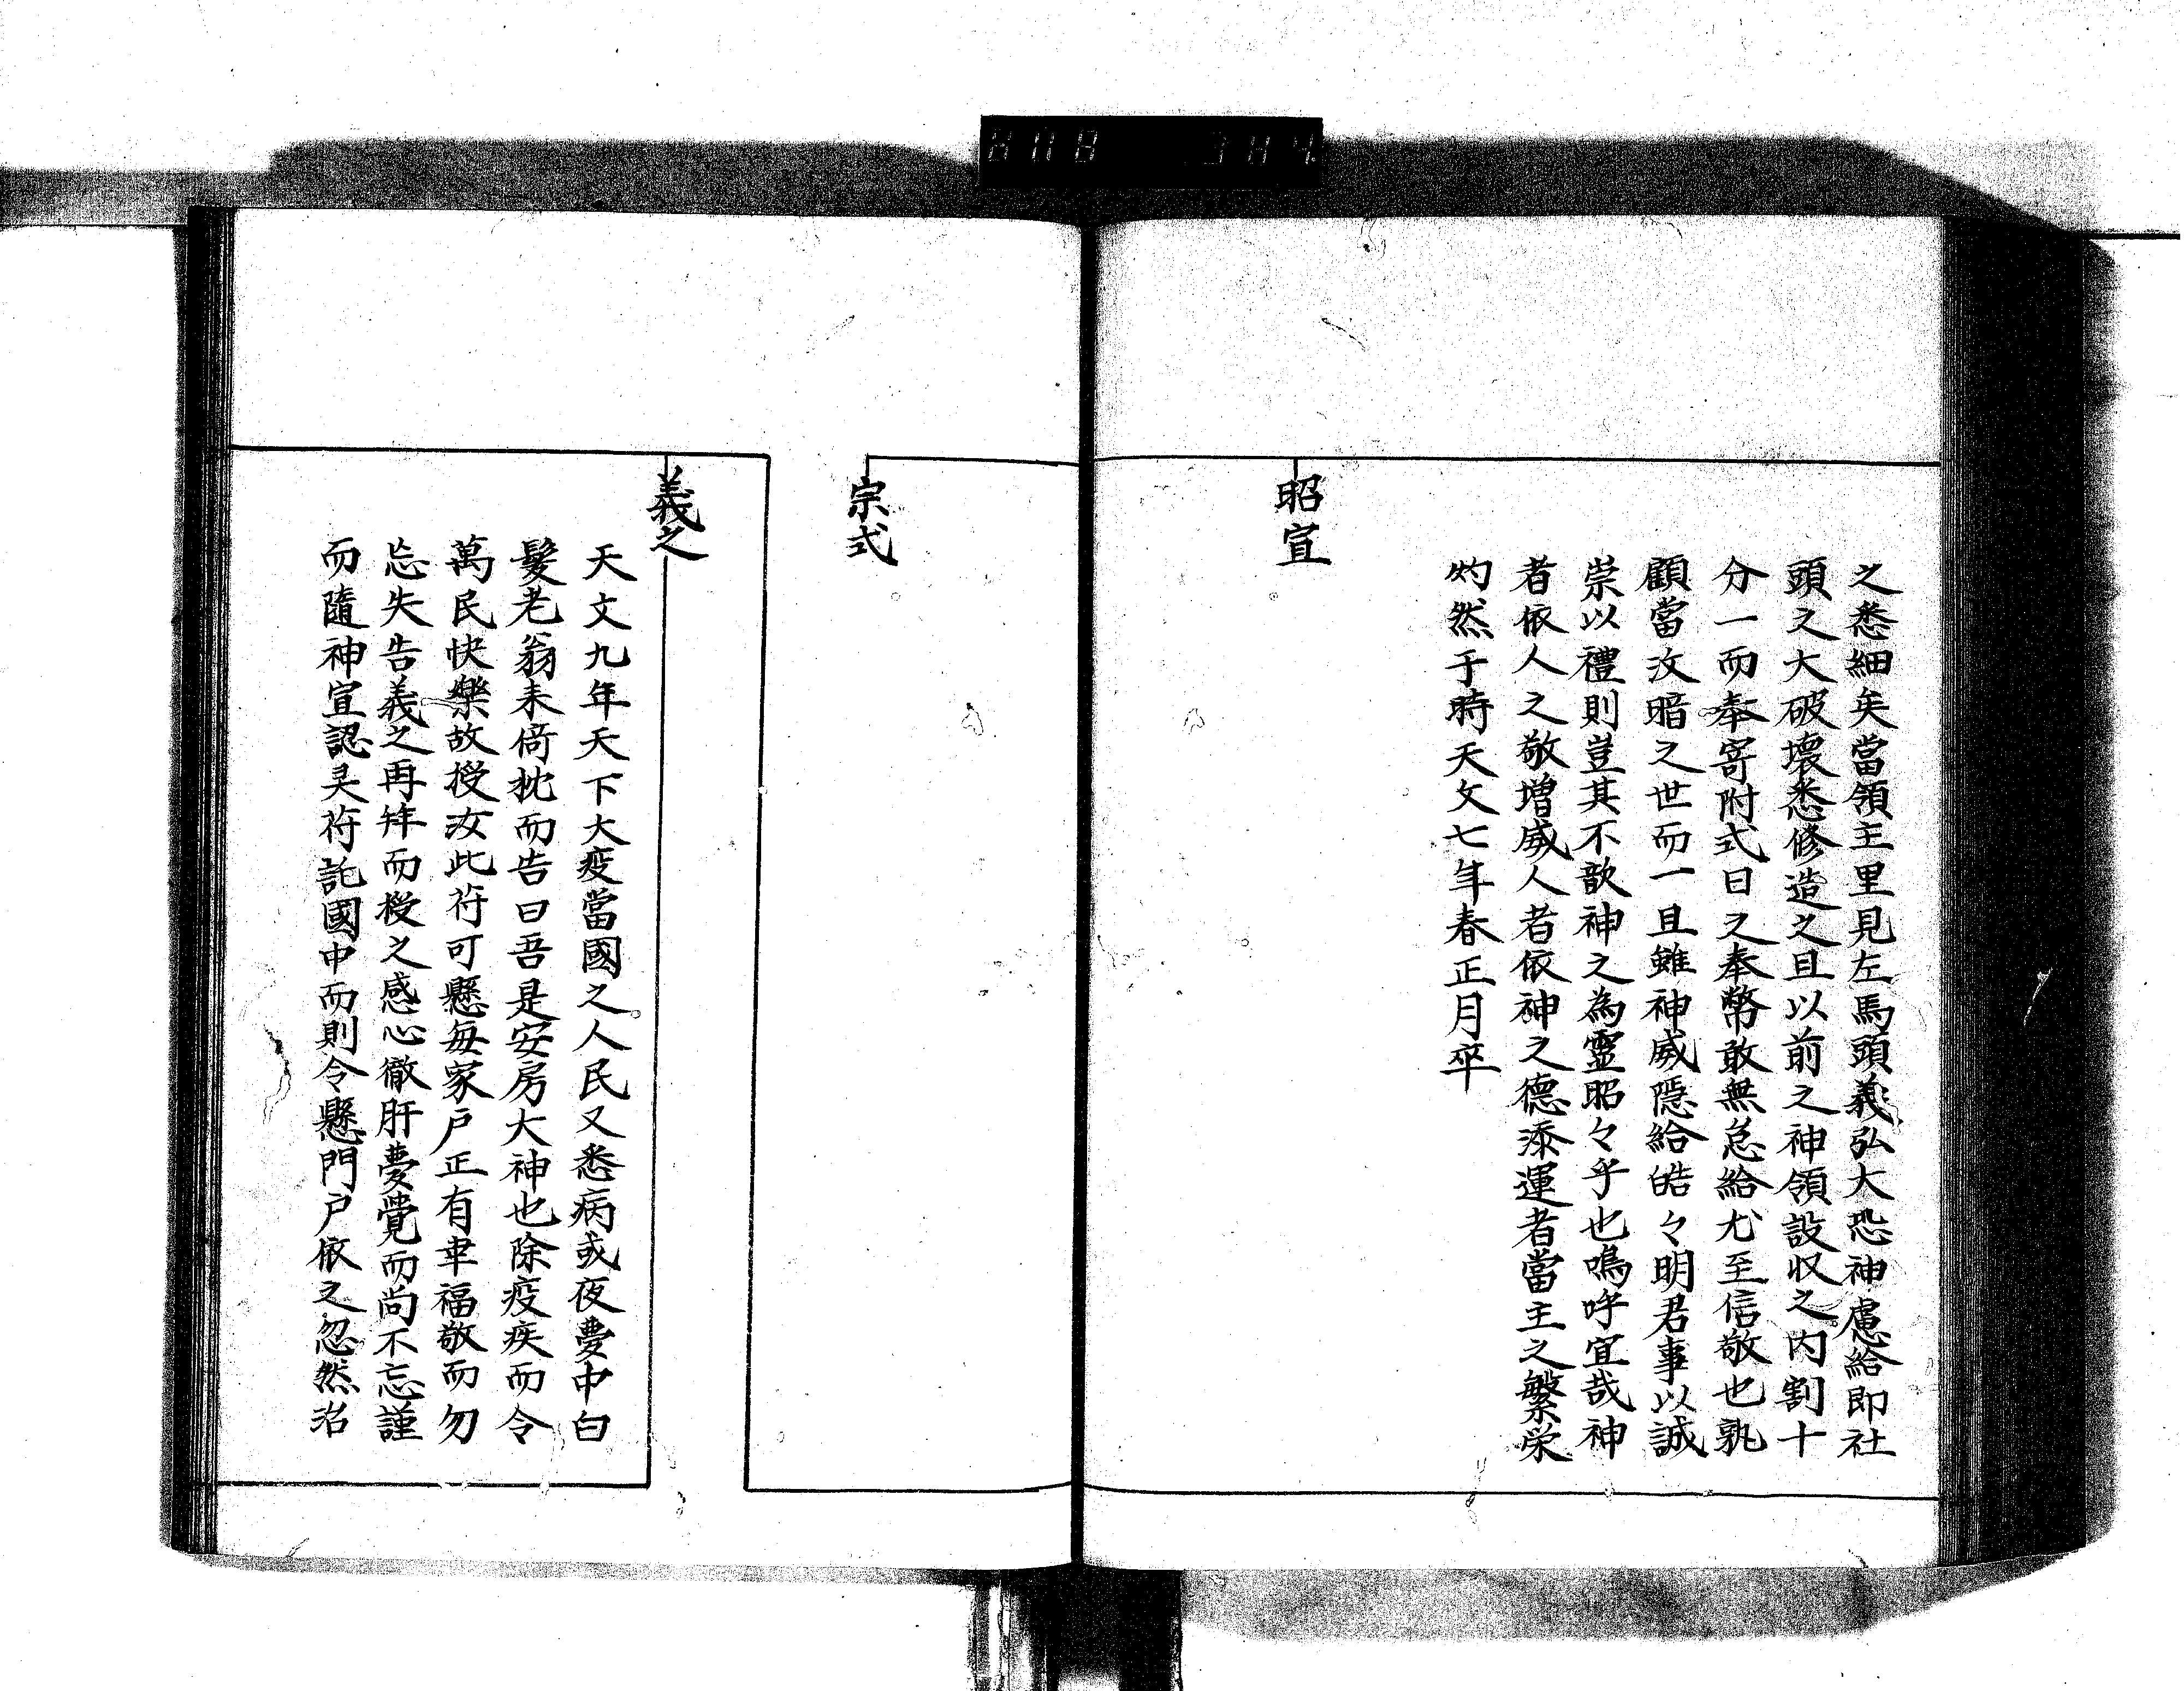 之悉細矣當領主里見左馬頭義弘大恐神慮給即社
頭之大破壞悉修造之且以前之神領設収之内割十
分一而奉寄附式日之奉幣敢無怠給尤至信敬也孰
顧當汶暗之世而一旦雖神威隠給皓々明君事以誠
崇以禮則豈其不歆神之為靈昭々乎也嗚呼宜哉神
者依人之敬増威人者依神之德添運者當主之繁栄
灼然于時天文七年春正月卒
昭宣
宗式
義之
天文九年天下大疫當國之人民又悉病或夜夢中白
髪老翁来倚枕而告曰吾是安房大神也除疫疾而令
萬民快樂故授汝此符可懸毎家戸正有幸福敬而勿
忘失告義之再拜而授之感心徹肝夢覺而尚不忘謹
而隨神宣認灵符託國中而則令懸門戸依之忽然治